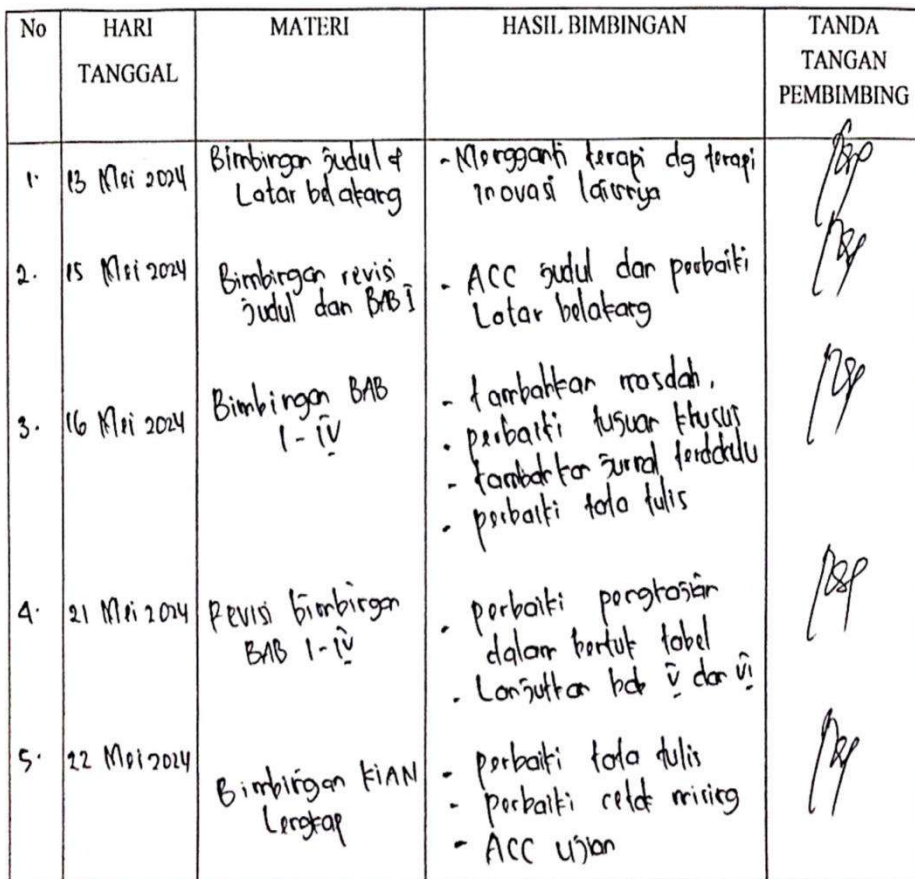 No HARI TANGGAL MATERI HASIL BIMBINGAN TANDA TANGAN PEMBIMBING
1. 13 Mei 2024 Bimbingan judul & Latar belakang
- Mengganti terapi dg terapi inovasi lainnya
2. 15 Mei 2024 Bimbingan revisi judul dan BAB I
- ACC judul dan perbaiki Latar belakang
3. 16 Mei 2024 Bimbingan BAB I - IV
- tambahkan masalah.
- perbaiki tujuan khusus
- tambahkan jurnal terdahulu
- perbaiki tata tulis
4. 21 Mei 2024 Revisi bimbingan BAB I - IV
- perbaiki pengkajian dalam bentuk tabel
- Lanjutkan bab V dan VI
5. 22 Mei 2024 Bimbingan KIAN Lengkap
- perbaiki tata tulis
- perbaiki cetak miring
- ACC ujian